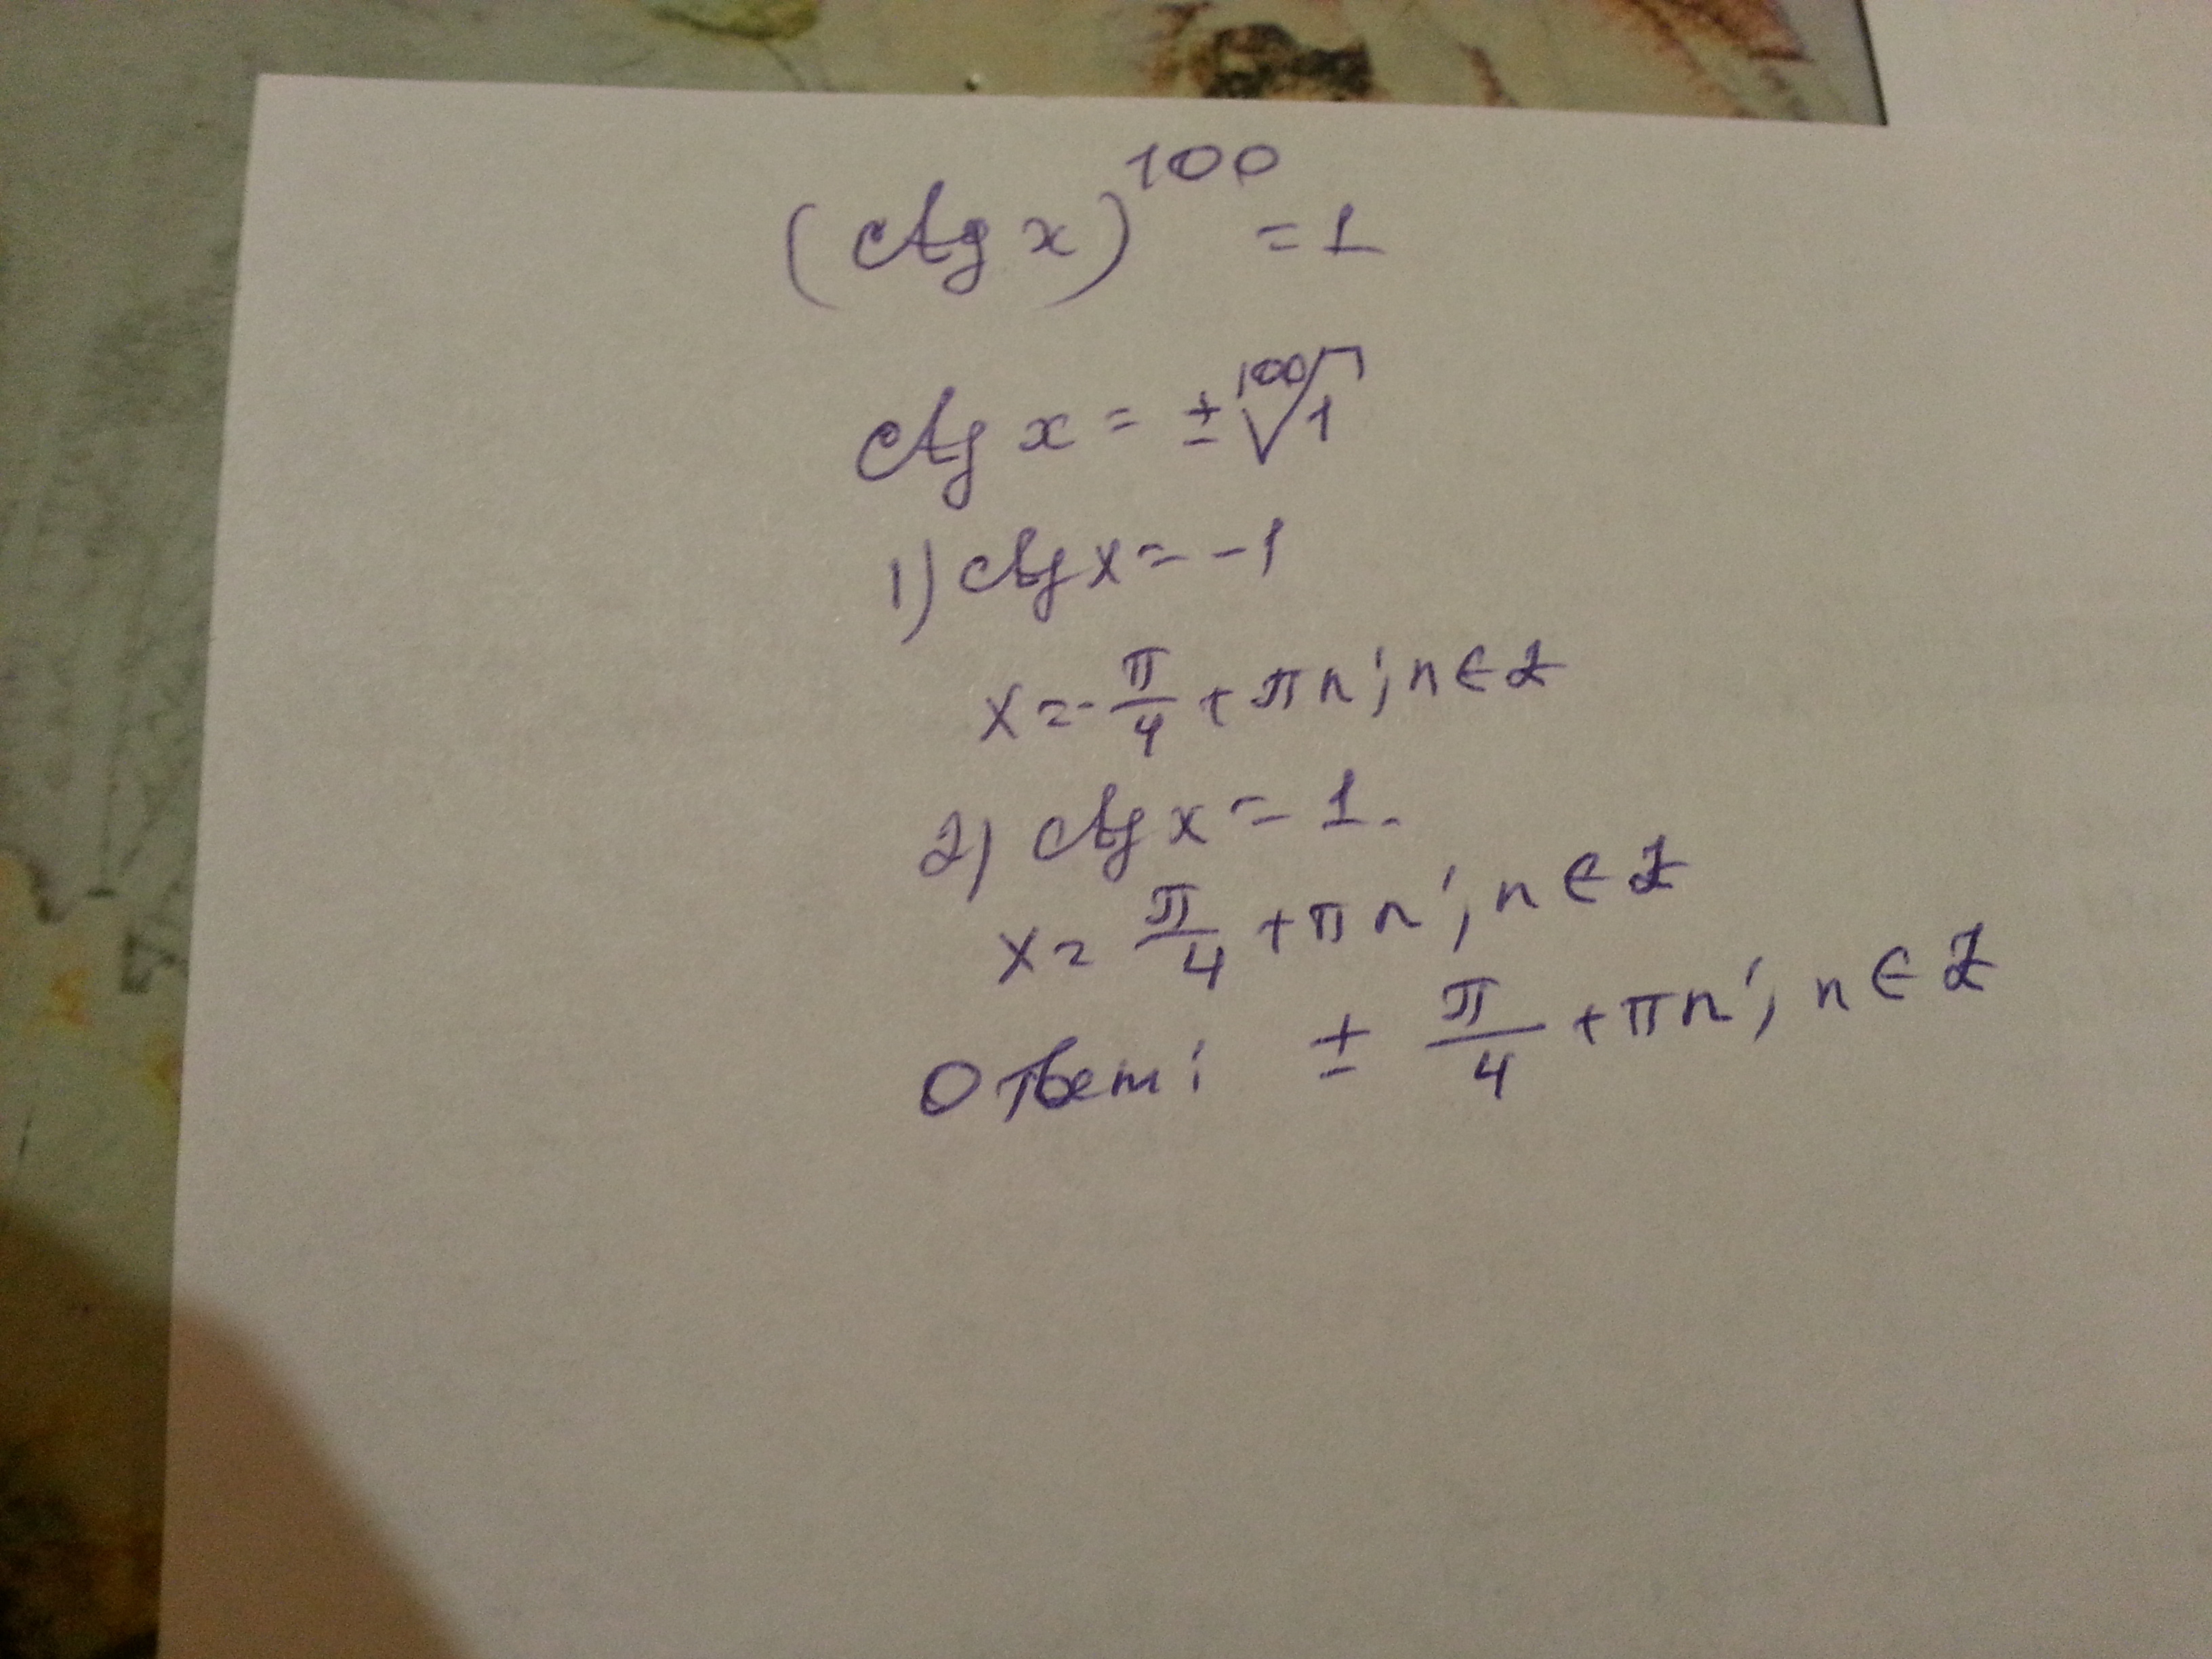 (ctg x)^100 = 1
ctg x = ± ¹⁰⁰√1
1) ctg x = -1
x = -π/4 + πn; n ∈ Z
2) ctg x = 1.
x = π/4 + πn; n ∈ Z
Ответ: ± π/4 + πn; n ∈ Z